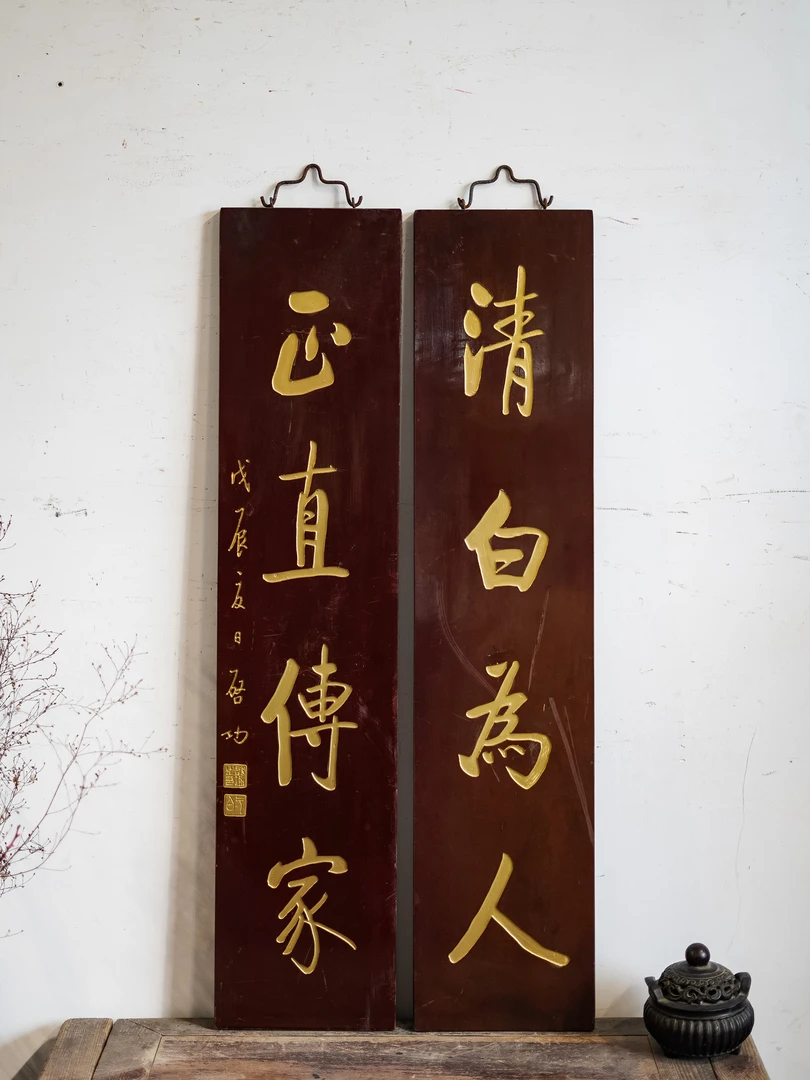 清白為人
正直傳家
戊辰夏日啓功